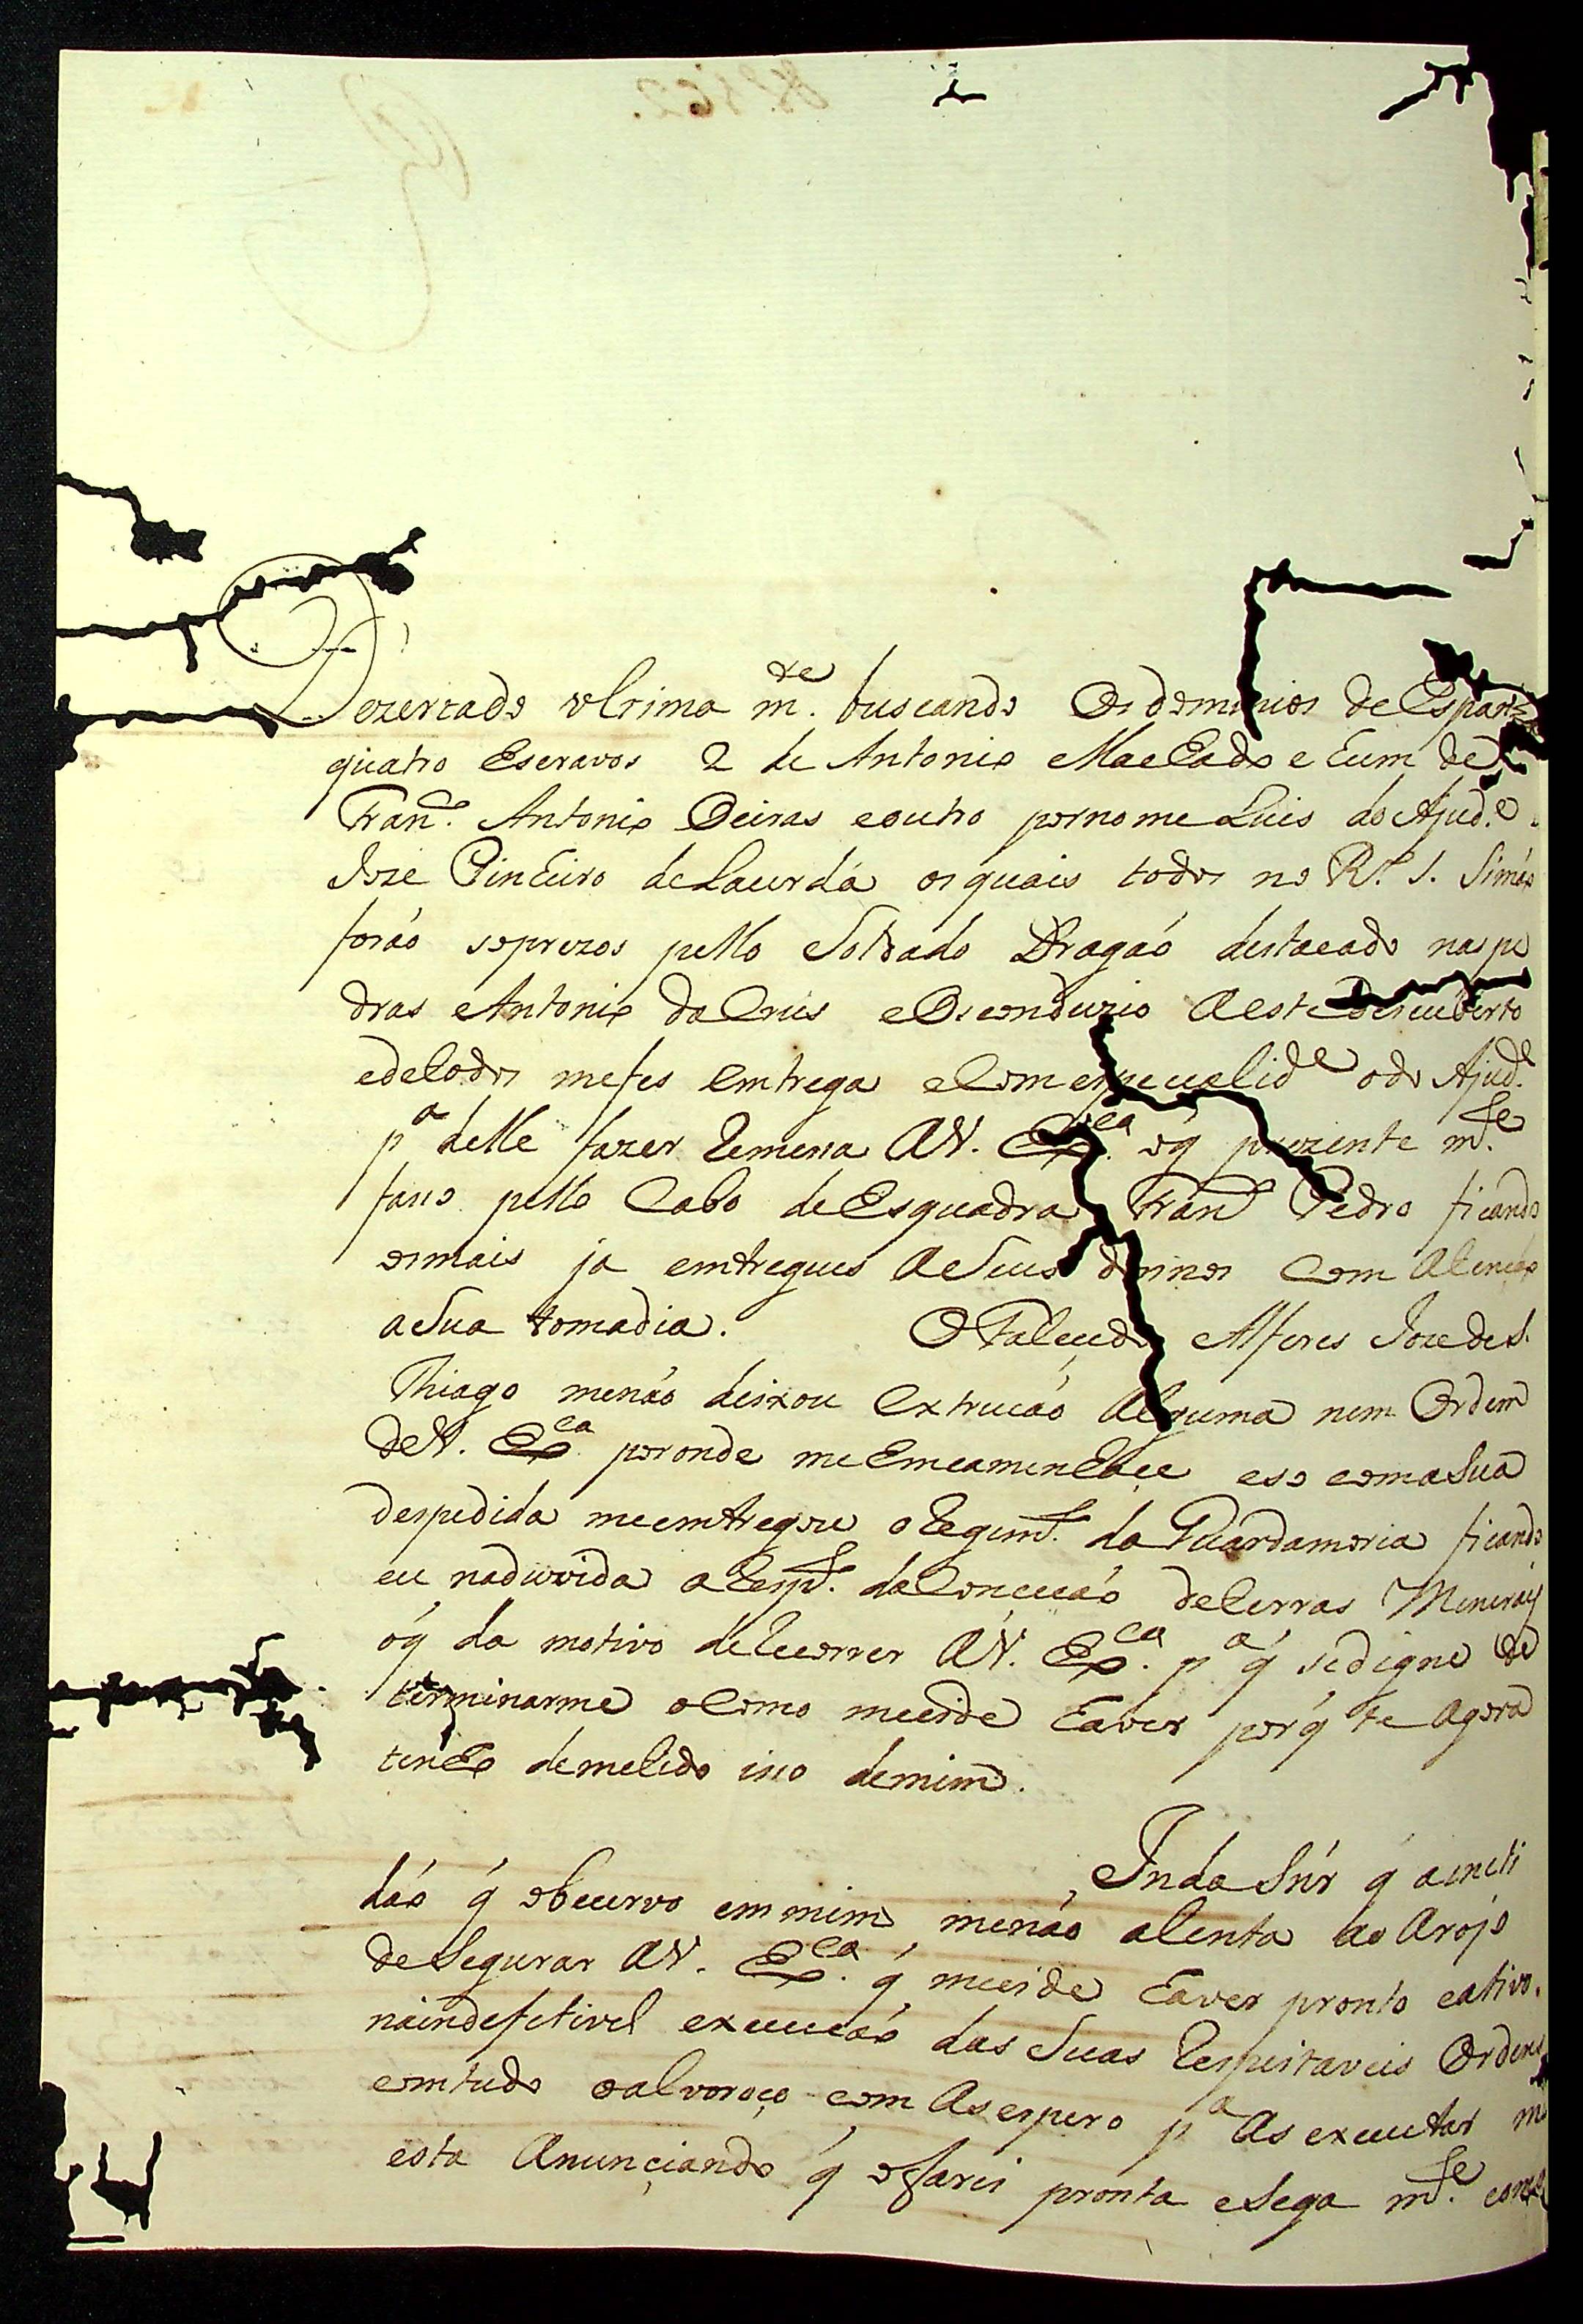 Dezertado ultima m.te buscando os dominios de Espan
quatro Escravos 2 de Antonio Machado e hum de
Fran.co Antonio Oeiras e outro por nome Luis do Ajud.e
Joze Pinheiro de Lacerda os quais todos no R.o S. Simáo
foráo soprezos pello Soldado Dragáo destacado nas pe
dras Antonio da Crus e Os conduzio a este descuberto
e de todos me fes Emtrega e Com expecialid.e o do Ajud.e
p.a delle fazer Remessa A V. Ex.ca o q prezente m.te
faso pello Cabo de Esquadra Fran.co Pedro ficando
os mais ja emtregues A Seus donnos Com Atencáo
a Sua tomadia. O Falecido Alferes Joze de S.
Thiago me náo deixou Extrucáo Alguma nem Ordem
de V. Ex.ca por onde me Emcaminhace e so com a Sua
despedida me emtregou o Regim.to da Guardamoria ficando
eu na duvida a Resp.to da Conceçáo de terras Menerais
o q da motivo de Recorrer A V. Ex.ca p.a q se digne de
terminarme o Como me ei de haver por q te Agora
tenho demetido iso de mim.
Inda Sńr q a inepti
dáo q obcervo em mim, me náo alenta ao Arojo
de Segurar A V. Ex.ca q me ei de haver pronto e ativo.
na indefetivel execucáo das Suas Respeitaveis Ordens
comtudo o alvoroço com As espero p.a As executar m
esta Anunçiando q o farei pronta e Sega m.te com